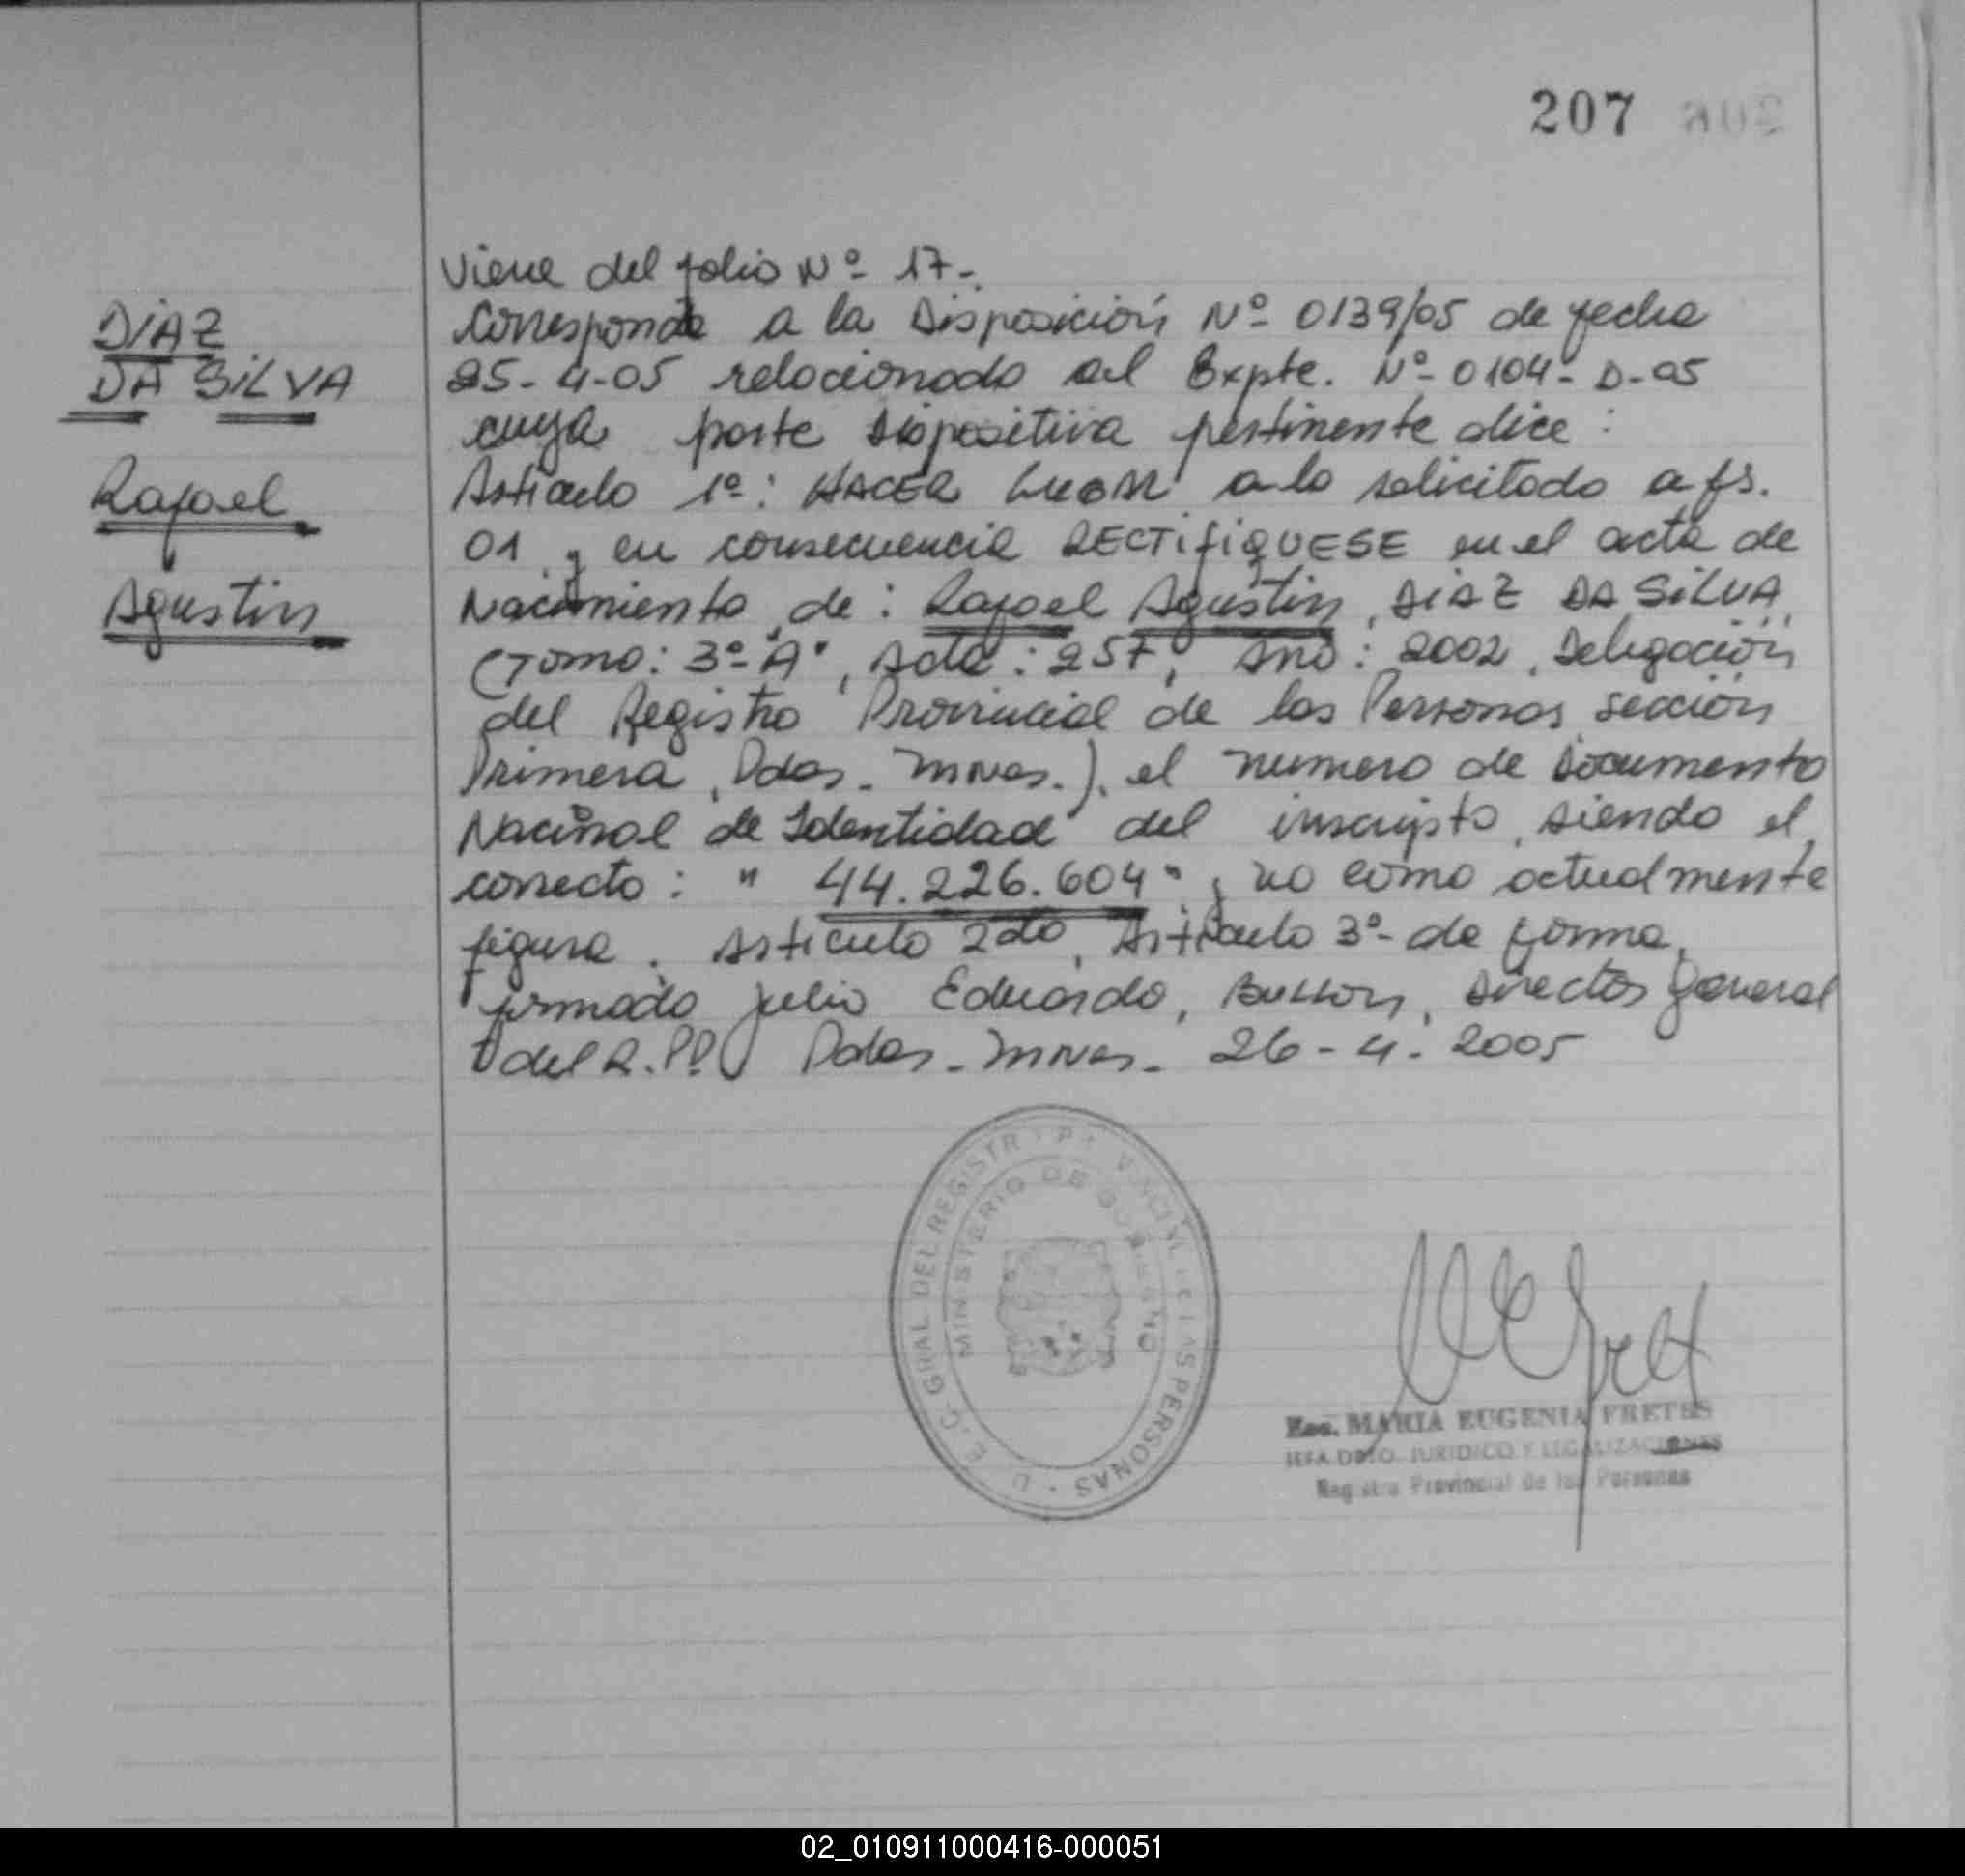 207
Viene del folio Nº 17-.
Corresponde a la Disposición Nº 0139/05 de fecha
25-4-05 relacionado al Expte. Nº 0104-D-05
cuya parte dispositiva pertinente dice:
Articulo 1º: HACER LUGAR a lo solicitado a fs.
01 y en consecuencia RECTIFIQUESE en el acta de
Nacimiento de: Rafael Agustin, DIAZ DA SILVA,
(Tomo: 3º "A", Acta: 257, Año: 2002, Delegación
del Registro Provincial de las Personas sección
Primera, Pdas. Mnes.), el numero de Documento
Nacional de Identidad del inscripto, siendo el
correcto: "44.226.604" y no como actualmente
figura. Articulo 2do, Articulo 3º- de forma,
firmado Julio Eduardo, Button, Director General
del R.P.P. Pdas. Mnes. 26-4-2005
DIAZ
DA SILVA
Rafael
Agustin
D. E. C. GRAL DEL REGISTR P VINCIAL DE LAS PERSONAS
MINISTERIO DE GOBIERNO
Esc. MARIA EUGENIA FRETES
JEFA DPTO. JURIDICO Y LEGALIZACIONES
Registro Provincial de las Personas
02_010911000416-000051